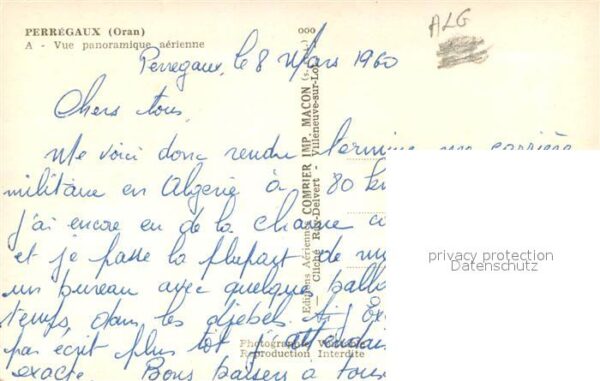 PERRÉGAUX (Oran)
A - Vue panoramique aérienne
ooo
ALG
Perregaux, le 8 Mars 1960
Chers tous,
Me voici donc rendu terminer ma carrière
militaire en Algérie à 80 km
j'ai encore eu de la chance
et je passe la plupart de
un bureau avec quelques
temps, dans les djebels.
pas écrit plus tôt j'attendais
exacte. Bons baisers à tous
Editions Aériennes COMBIER IMP. MACON
Cliché Ray-Delvert - Villeneuve-sur-Lot
Photographie Véritable
Reproduction Interdite
privacy protection
Datenschutz